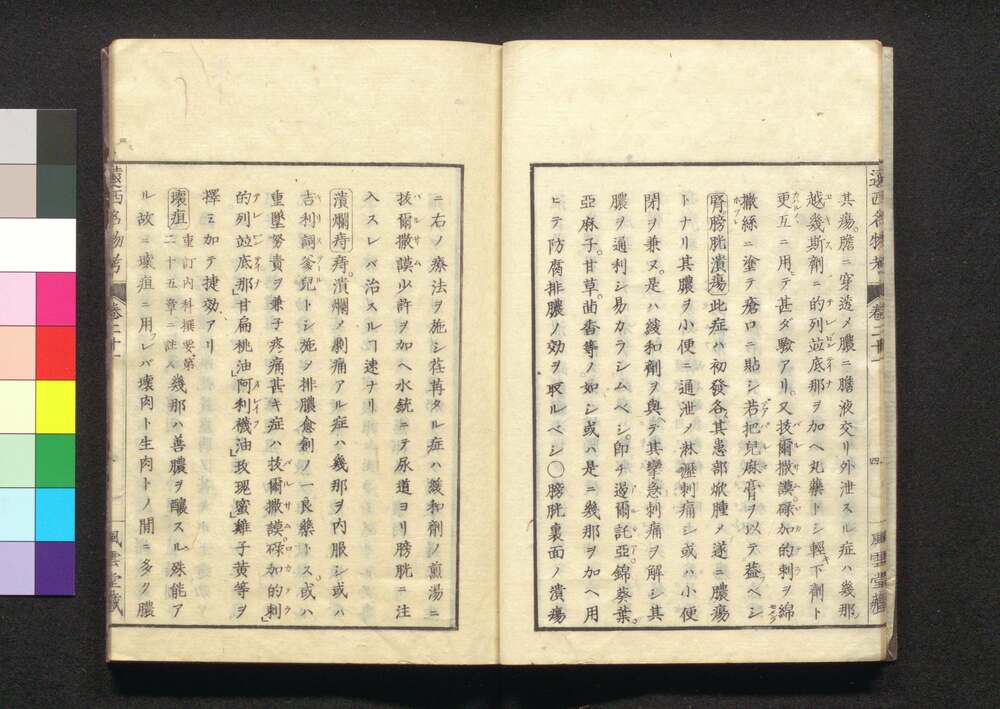 其瘍膽ニ穿透メ膿ニ膽液交リ外泄スル症ハ幾那
越幾斯劑ニ的列並底那ヲ加ヘ丸藥トシ輕下劑ト
更互ニ用テ甚ダ驗アリ又拔爾撒謨碌加的刺ヲ綿
撒絲ニ塗テ瘡口ニ貼シ若把兒麻膏ヲ以テ葢ベシ
腎膀胱潰瘍 此症ハ初發各其患部焮腫メ遂ニ膿瘍
トナリ其膿ヲ小便ニ通泄メ淋瀝刺痛シ或ハ小便
閉ヲ兼ヌ是ハ緩和劑ヲ與テ其攣急刺痛ヲ解シ其
膿ヲ通利シ易カラシムベシ即チ過爾託亞錦葵葉
亞麻子甘草茴香等ノ如シ或ハ是ニ幾那ヲ加ヘ用
ヒテ防腐排膿ノ効ヲ取ルベシ〇膀胱裏面ノ潰瘍
遠西名物考 卷二十一
四
風雲堂藏
ニ右ノ療法ヲ施シ荏苒タル症ハ緩和劑ノ煎湯ニ
拔爾撒謨少許ヲ加ヘ水銃ニテ尿道ヨリ膀胱ニ注
入スレバ治スルヿ速ナリ
潰爛痔 痔潰爛メ刺痛アル症ハ幾那ヲ内服シ或ハ
吉利詞釜兒トシ施ヲ排膿愈創ノ一良藥トス或ハ
重墜努責ヲ兼子疼痛甚キ症ハ拔爾撒謨碌加的刺
的列並底那甘扁桃油阿利襪油玫瑰蜜雞子黄等ヲ
擇ミ加テ捷効アリ
壞疽 重訂内科撰要第二十五章ニ註ス 幾那ハ善膿ヲ釀スル殊能ア
ル故ニ壞疽ニ用レバ壞肉ト生肉トノ間ニ多ク膿
遠西名物考 卷二十一
風雲堂藏